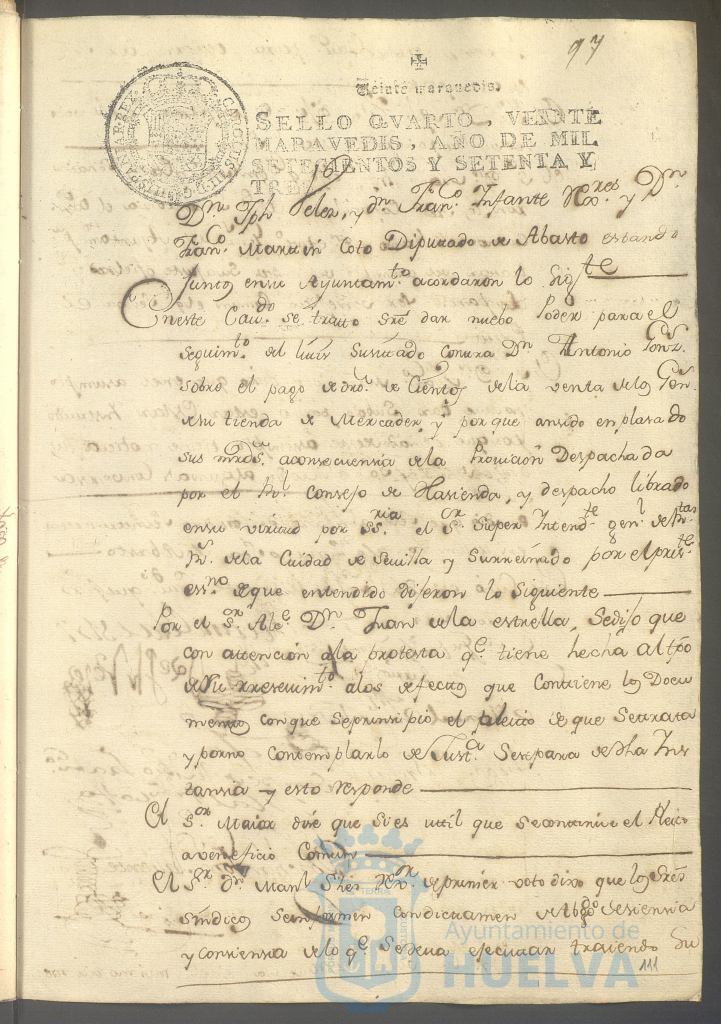 97
Veinte maravedis.
SELLO QVARTO, VEINTE
MARAVEDIS, AÑO DE MIL
SETECIENTOS Y SETENTA Y
TRES
CAROLUS III D G HISPANIAR REX
Dn Jph Velez, y dn Franco Infante Rexres y Dn
Franco Martin Coto Diputado de Abasto estando
Juntos en su Ayuntamto acordaron lo Sigte
En este Cavdo se tratto Sre dar nuebo Poder para el
seguimto del litis Suscitado contra Dn Antonio Gonz
sobre el pago de dros de Cientos de la venta de los Gen
de su tienda de Mercader, y porque an sido en plasado
sus mrds a consecuensia de la Provicion Despachada
por el Rl Consejo de Hasienda, y despacho librado
en su virtud por Ssria el Sor Super Intendte genl de Rtas
Rs de la Ciudad de Sevilla y Su Reinado por el prte
esno de que entendido Dijeron lo Siguiente
Por el Sor Alce Dn Juan de la estrella, Se dijo que
con attención a la protesta qe tiene hecha al tpo
de su rresevimto a los efectos que Contiene los Docu
mentos con que Se prinsipió el pleito de que Se trata
y por no Contemplarlo de Justa Se separa de dha Ins
tansia y esto Responde
El Sor Maior dixe que si es util que se continue el Pleito
a veneficio Comun
El Sr Dn Manl Rexor de primer voto dixo que los Sres
Sindicos Se informen con dictamen de Abgdo de siensia
y Consiensia de lo qe Se deva ejecutar traiendo Su
Ayuntamiento de
HUELVA
111